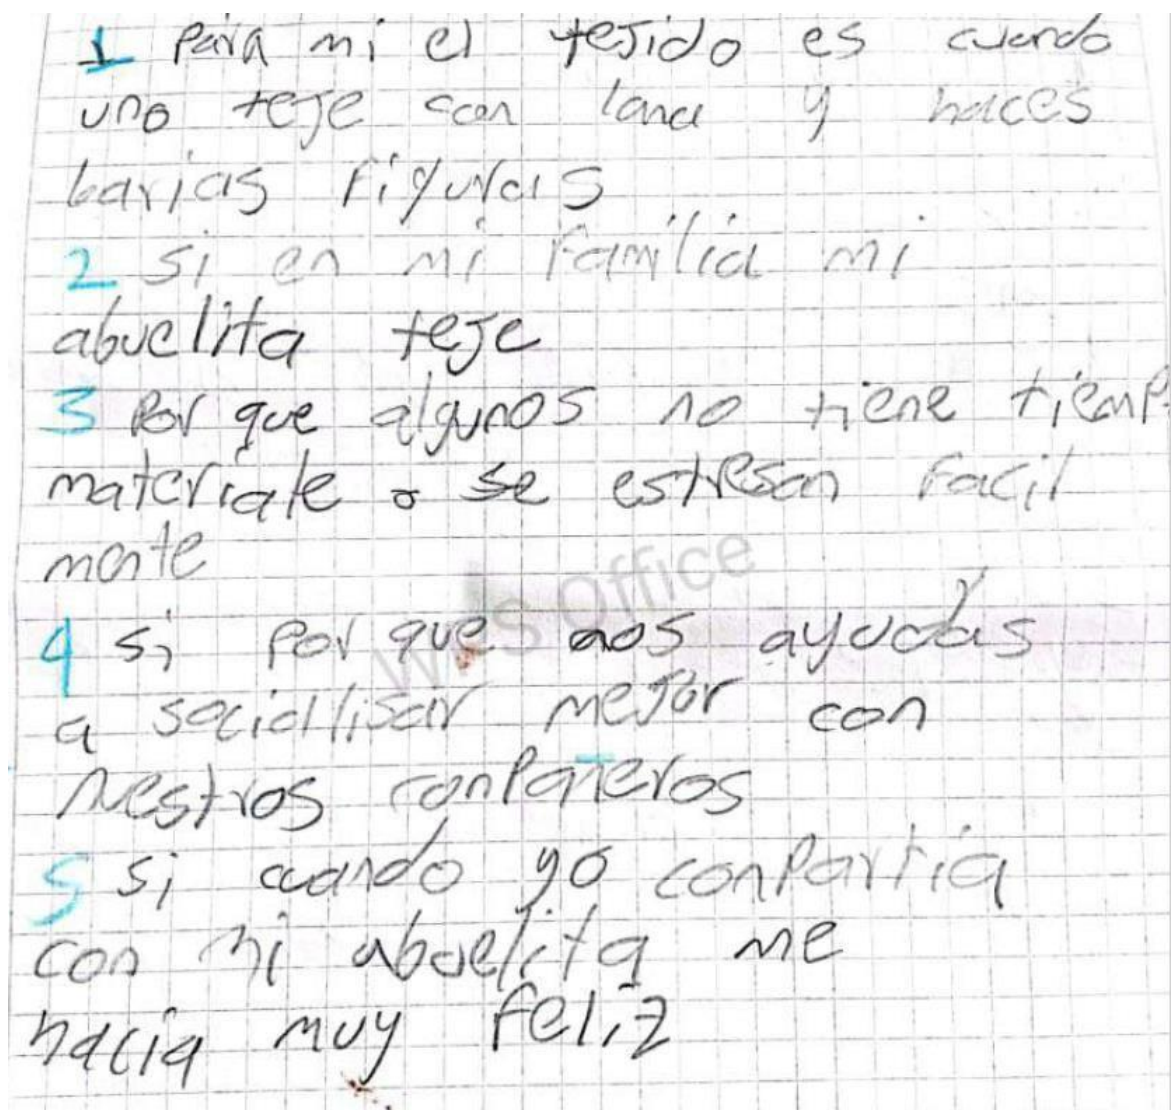 1 para mi el tejido es cuando
uno teje con lana y haces
barias figuras
2 si en mi familia mi
abuelita teje
3 Por que algunos no tiene tiemp
materiale o se estresan facil
mente
4 si por que nos ayudas
a sociallisar mejor con
nuestros conpañeros
5 si cuando yo conpartia
con mi abuelita me
hacia muy feliz
WPS Office